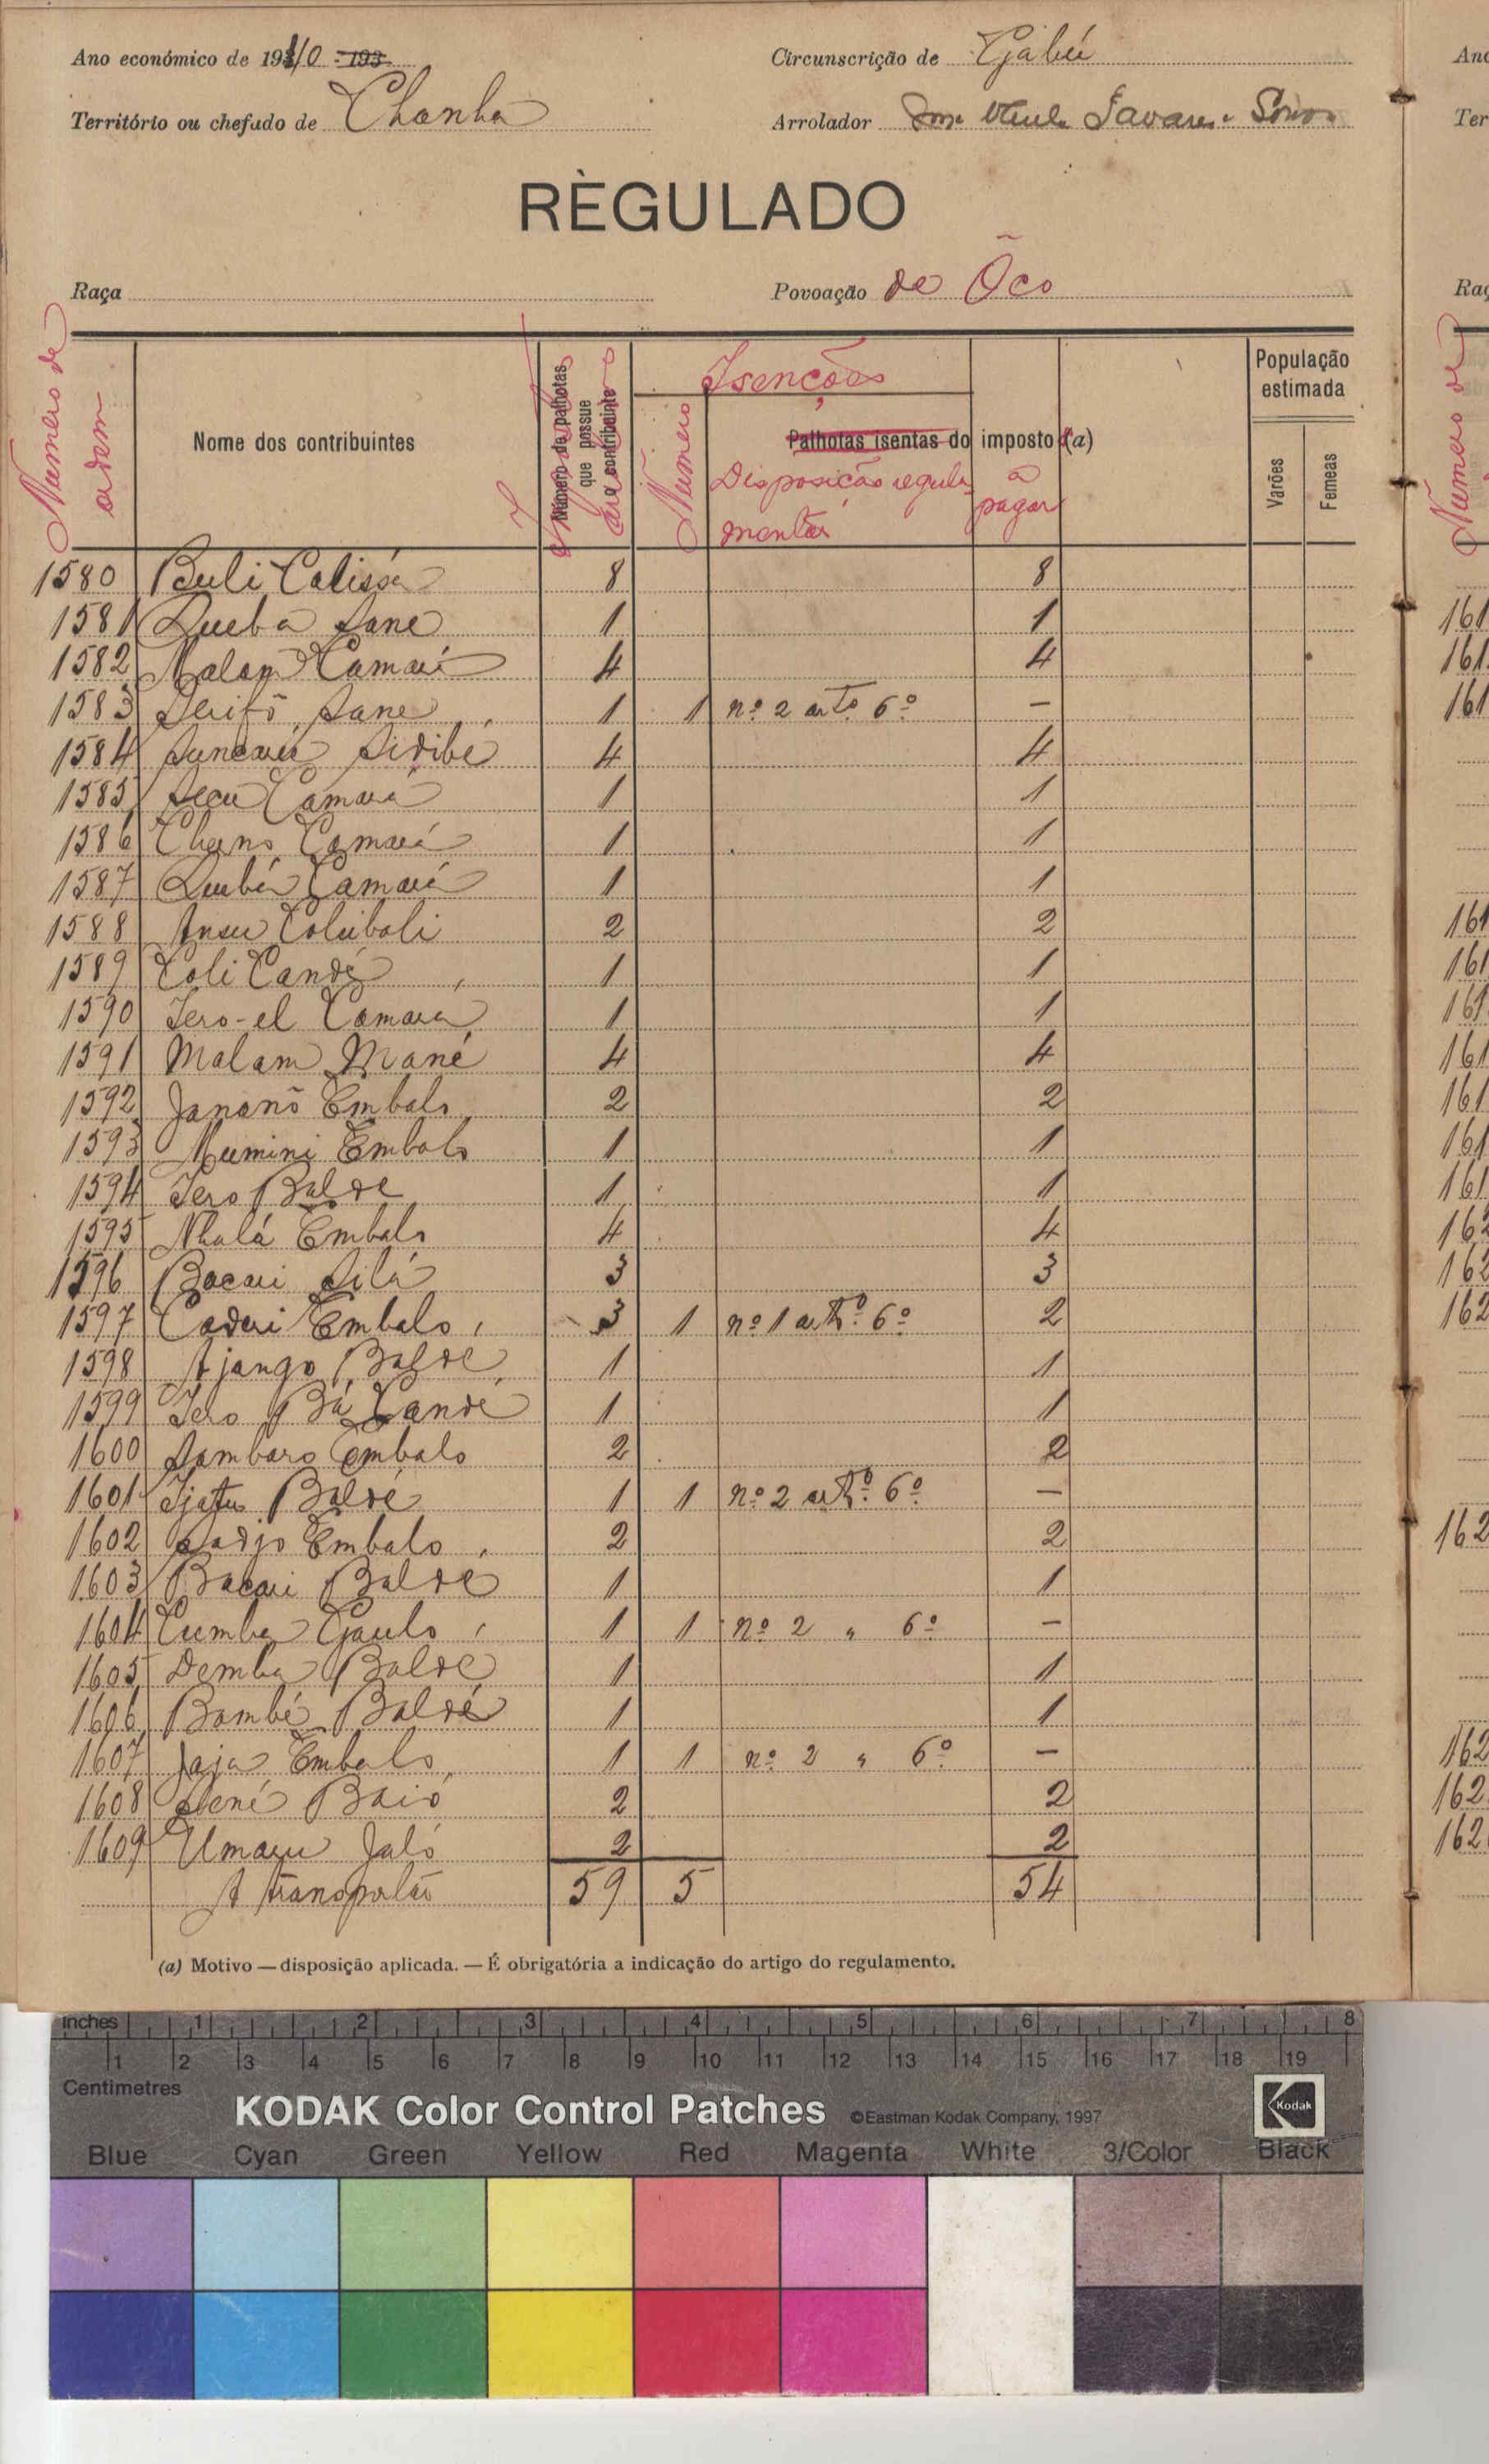 Ano económico de 19 40 - 193
Circunscrição de Gabú
Território ou chefado de Chanha
Arrolador Tavares
RÈGULADO
Raça
Povoação de Ôco
Número de ordem
Nome dos contribuintes
Número de palhotas que possue o contribuinte
Isenções
Número
Palhotas isentas do imposto (a)
Disposição regulamentar
a pagar
População estimada
Varões
Femeas
1580 Buli Calissa 8 8
1581 Queba Sane 1 1
1582 Malam Camará 4 4
1583 Serifo Sane 1 1 nº 2 artº 6º —
1584 Suncaru Sidibé 4 4
1585 Secu Camará 1 1
1586 Cherno Camará 1 1
1587 Queba Camará 1 1
1588 Ansu Colubali 2 2
1589 Coli Candé 1 1
1590 Iero-el Camara 1 1
1591 Malam Mané 4 4
1592 Jananõ Embalo 2 2
1593 Mumini Embalo 1 1
1594 Iero Balde 1 1
1595 Nhalá Embalo 4 4
1596 Bacari Silá 3 3
1597 Caderi Embalo 3 1 nº 1 artº 6º 2
1598 Ajango Balde 1 1
1599 Iero Bá Candé 1 1
1600 Sambaro Embalo 2 2
1601 Ijatu Baldé 1 1 nº 2 artº 6º —
1602 Sadjo Embalo 2 2
1603 Bacari Balde 1 1
1604 Cumba Gaulo 1 1 nº 2 " 6º —
1605 Demba Balde 1 1
1606 Bambé Baldé 1 1
1607 Jaja Embalo 1 1 nº 2 " 6º —
1608 Sené Baio 2 2
1609 Umaru Jaló 2 2
A transportar 59 5 54
(a) Motivo — disposição aplicada. — É obrigatória a indicação do artigo do regulamento.
inches 1 2 3 4 5 6 7 8
1 2 3 4 5 6 7 8 9 10 11 12 13 14 15 16 17 18 19
Centimetres
KODAK Color Control Patches ©Eastman Kodak Company, 1997 Kodak
Blue Cyan Green Yellow Red Magenta White 3/Color Black